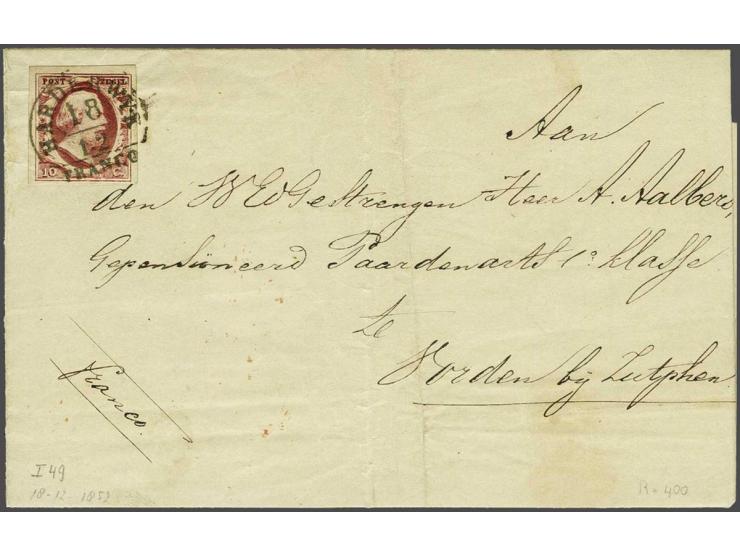 POST ZEGEL
HARDERWYK
18
12
FRANCO
10 C.
Aan
den WEdGestrengen Heer A. Aalbers,
Gepensioneerd Paardenarts 1e klasse
te
Vorden bij Zutphen
franco.
I 49
18-12-1852
R=400